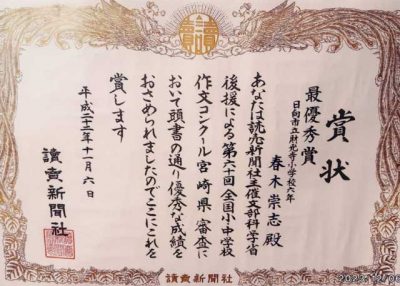 賞状
最優秀賞
日向市立財光寺小学校六年
春木崇志 殿
あなたは読売新聞社主催文部科学省
後援による第六十回全国小中学校
作文コンクール宮崎県審査に
おいて頭書の通り優秀な成績を
おさめられましたのでここにこれを
賞します
平成二十二年十一月六日
讀賣新聞社
讀賣新聞社